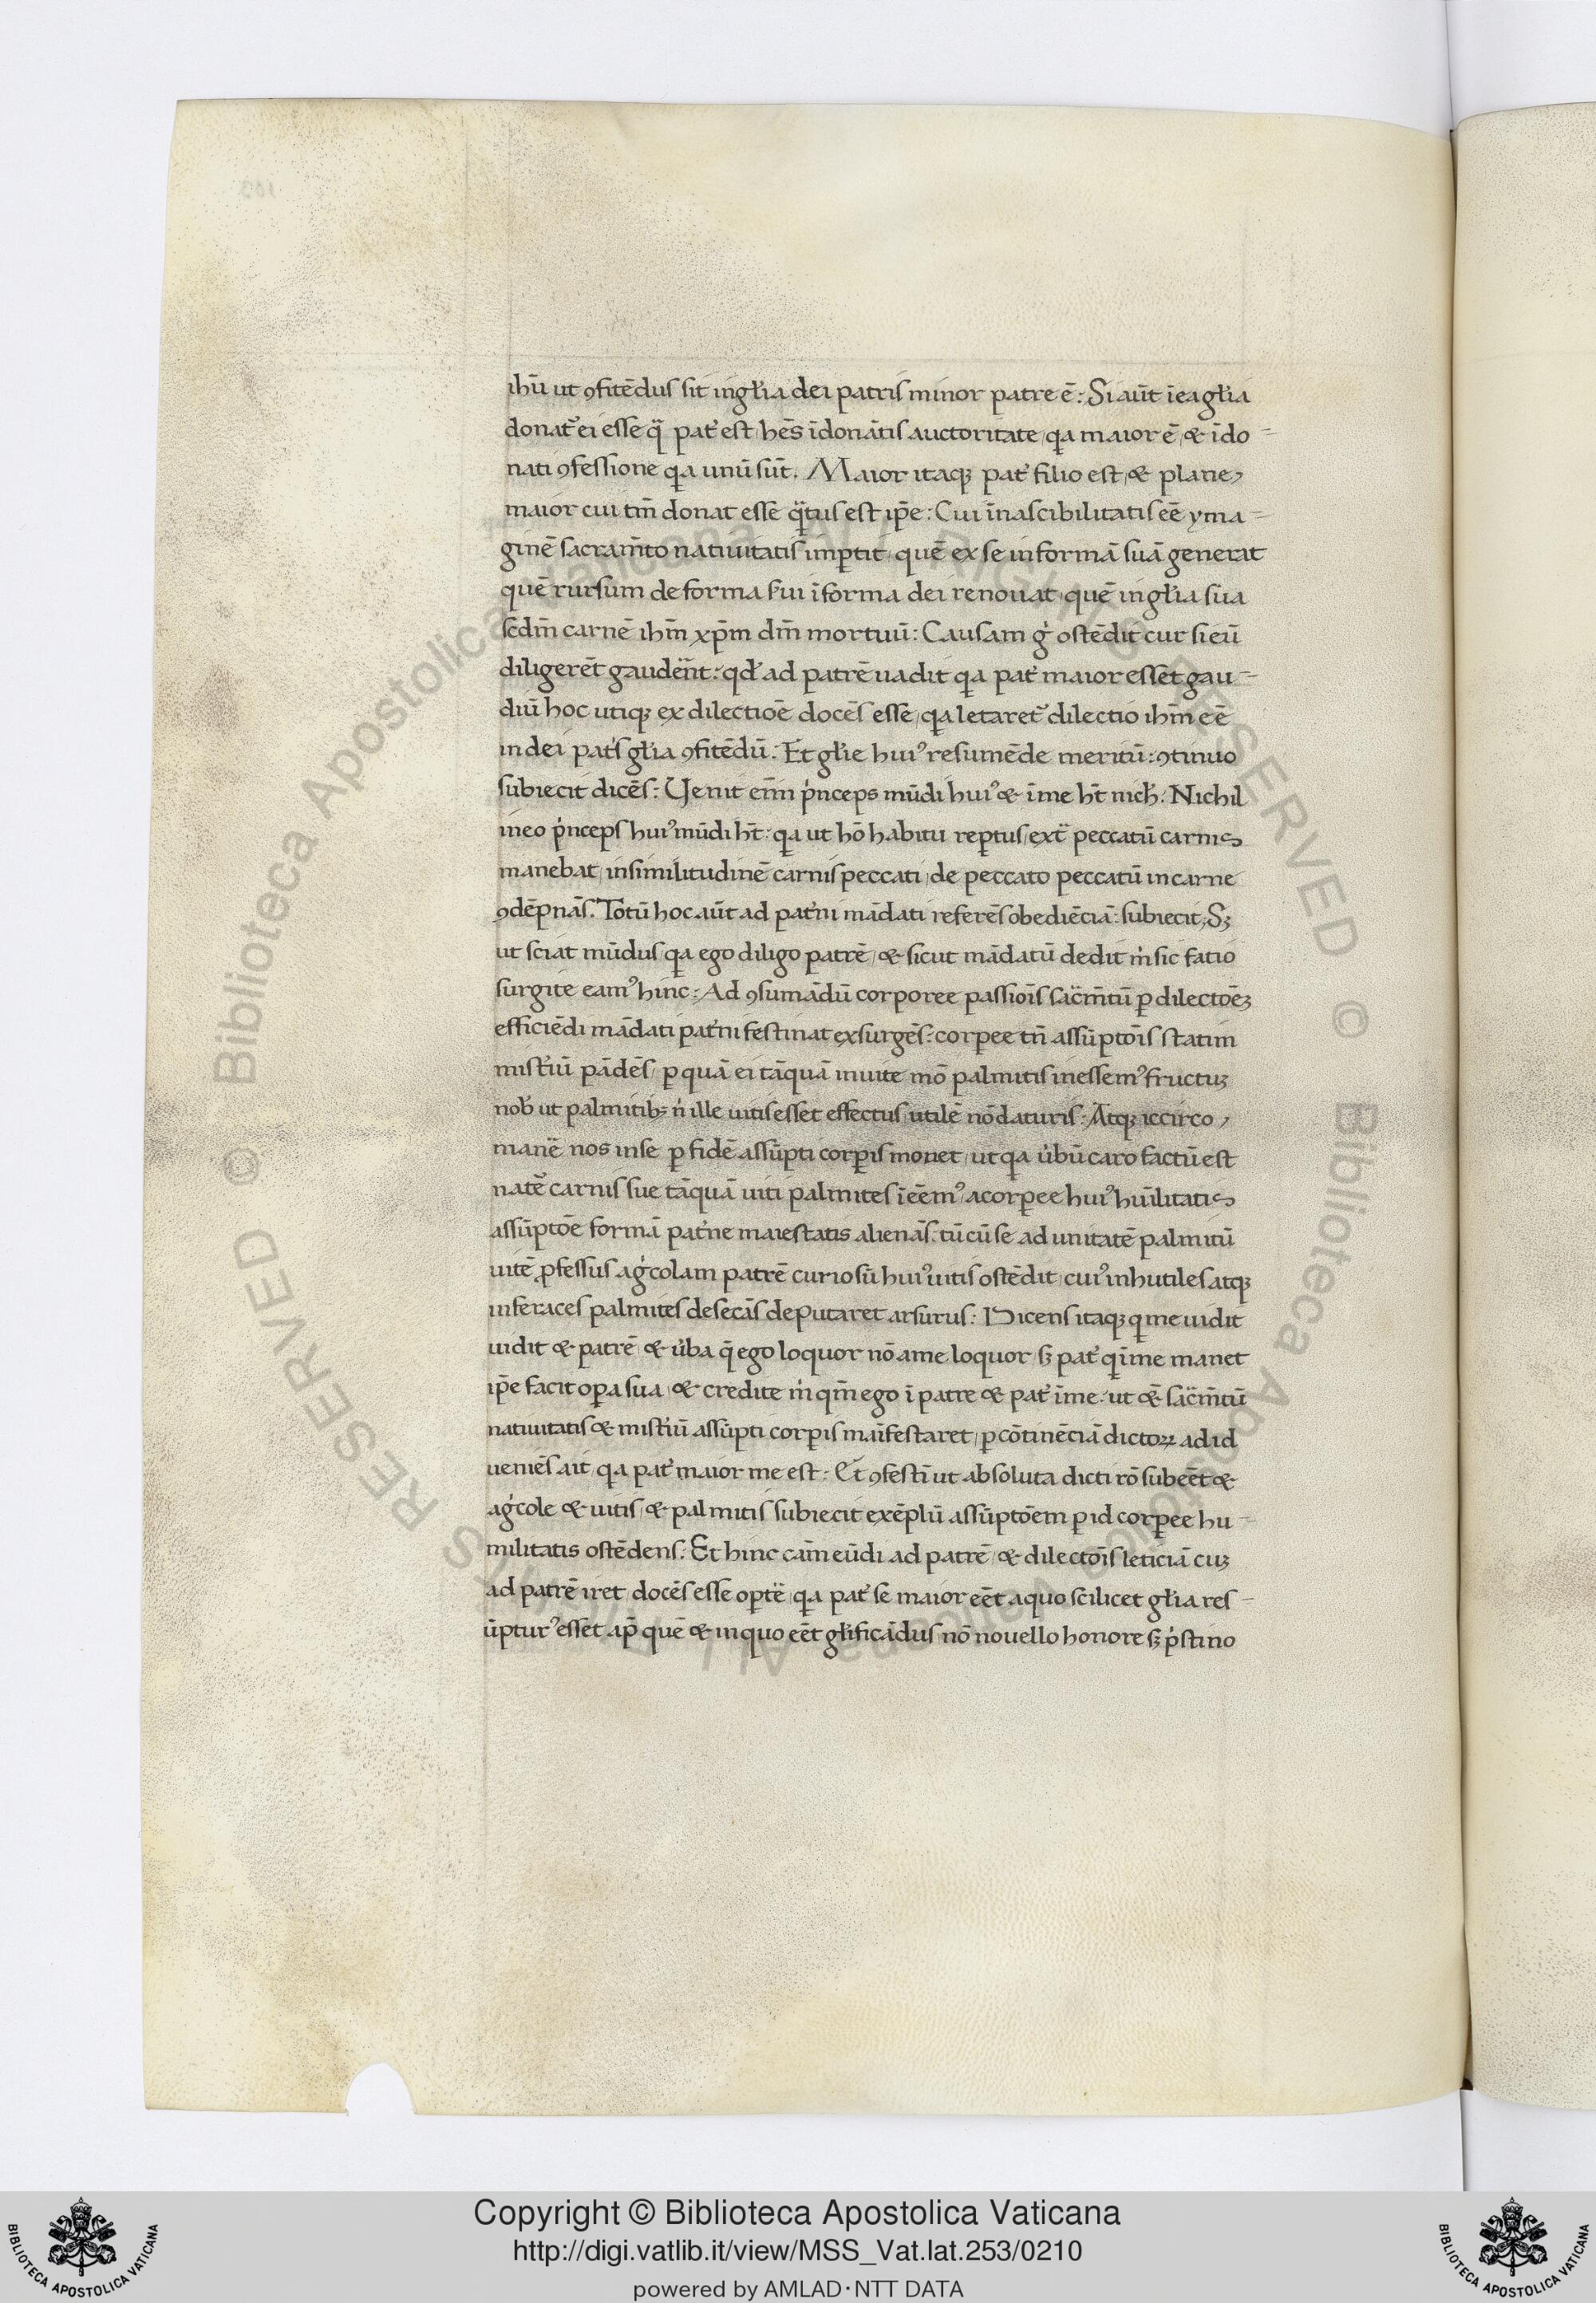 ihū ut ꝯfitēdus sit in gl̄ia dei patris minor patre ē: Si aūt ī ea gl̄ia
donat᷑ ei esse q̄ pat᷑ est, hēs ī donātis auctoritate, qa maior ē, & ī do-
nati ꝯfessione qa unū sūt. Maior itaqꝫ pat᷑ filio est, & plane
maior cui tm̄ donat esse q̄tus est ip̄e: Cui īnascibilitatis eē yma-
ginē sacram̄to natiuitatis imꝑtit, quē ex se in formā suā generat
quē rursum de forma s̄ui ī forma dei renouat, quē in gl̄ia sua
scd̄m carnē ihm̄ xp̄m dm̄ mortuū: Causam g̊ ostēdit cur si eū
diligerēt gauder̄nt: qd̄ ad patrē uadit qa pat᷑ maior esset gau-
diū hoc utiqꝫ ex dilectiōe docēs esse, qa letaret᷑ dilectio ihm̄ eē
in dei pat᷑s gl̄ia ꝯfitēdū: Et gl̄ie huiꝰ resumēde meritū: ꝯtinuo
subiecit dicēs: Uenit eni̅m princeps mūdi huiꝰ & ī me ht̄ nich̄. Nichil
in eo princeps huiꝰ mūdi ht̄: qa ut hō habitu reꝑtus, ext᷑ peccatū carnis
manebat, in similitudinē carnis peccati, de peccato peccatū in carne
ꝯdēpnās. Totū hoc aūt ad pat᷑ni mādati referēs obediēciā: subiecit, Sꝫ
ut sciat mūdus, qa ego diligo patrē, & sicut mādatū dedit m̊ sic fatio
surgite eamꝰ hinc: Ad ꝯsumādū corporee passiōis sac̄m̄tū ꝑ dilectōeꝫ
efficiēdi mādati pat᷑ni festinat exsurgēs: corꝑee tn̄ assūptōis statim
mist᷑iū pādēs, ꝑ quā ei tāquā in uite mō palmitis inessemꝰ fructuꝫ
nob᷑ ut palmitibꝫ n᷑ ille uitis esset effectus, utilē nō daturis: Atqꝫ iccirco
manē nos in se ꝑ fidē assūpti corꝑis monet, ut qa u᷑bū caro factū est
natē carnis sue tāquā uiti palmites īeēmꝰ, a corꝑee huiꝰ hūilitatis
assūptōe formā pat᷑ne maiestatis alienās: tū cū se ad unitatē palmitū
uitē ꝓfessus ag᷑colam patrē curiosū huiꝰ uitis ostēdit, cuiꝰ inhutiles atqꝫ
inferaces palmites desecās deputaret arsurus: Dicens itaqꝫ q̇ me uidit
uidit & patrē, & u᷑ba q̄ ego loquor nō a me loquor, sꝫ pat᷑ q̇ ī me manet
ip̄e facit oꝑa sua, & credite m̊ qm̄ ego ī patre & pat᷑ ī me: ut & sac̄m̄tū
natiuitatis & mist᷑iū assūpti corꝑis maīfestaret, ꝑ cōtinēciā dictoꝝ ad id
ueniēs ait, qa pat᷑ maior me est: Et ꝯfestī ut absoluta dicti rō subeēt &
ag᷑cole & uitis, & palmitis subiecit exēplū assūptōem ꝑ id corꝑee hu-
militatis ostēdens. Et hinc cām eūdi ad patrē, & dilectōis leticiā cuꝫ
ad patrē iret, docēs esse oꝑtē, qa pat᷑ se maior eēt a quo scilicet gl̄ia res-
ūpturꝰ esset, ap̄ quē & in quo eēt gl̄ificādus, nō nouello honore sꝫ p᷑stino
Copyright © Biblioteca Apostolica Vaticana
http://digi.vatlib.it/view/MSS_Vat.lat.253/0210
powered by AMLAD·NTT DATA